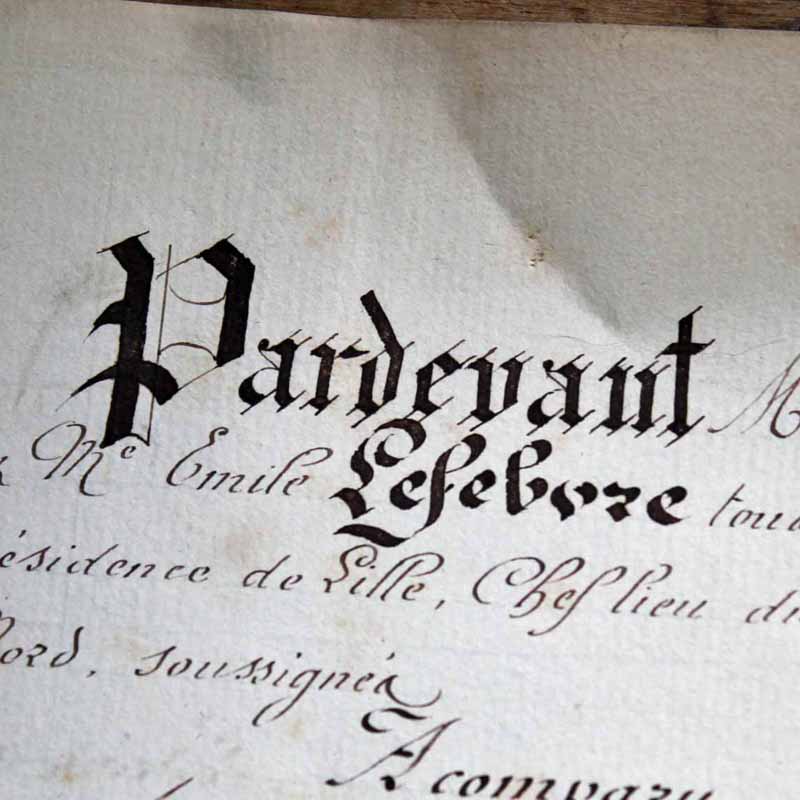 Pardevant M
Me Emile Lefebvre tou
ésidence de Lille, Chef lieu du
Nord, soussignés
A compary